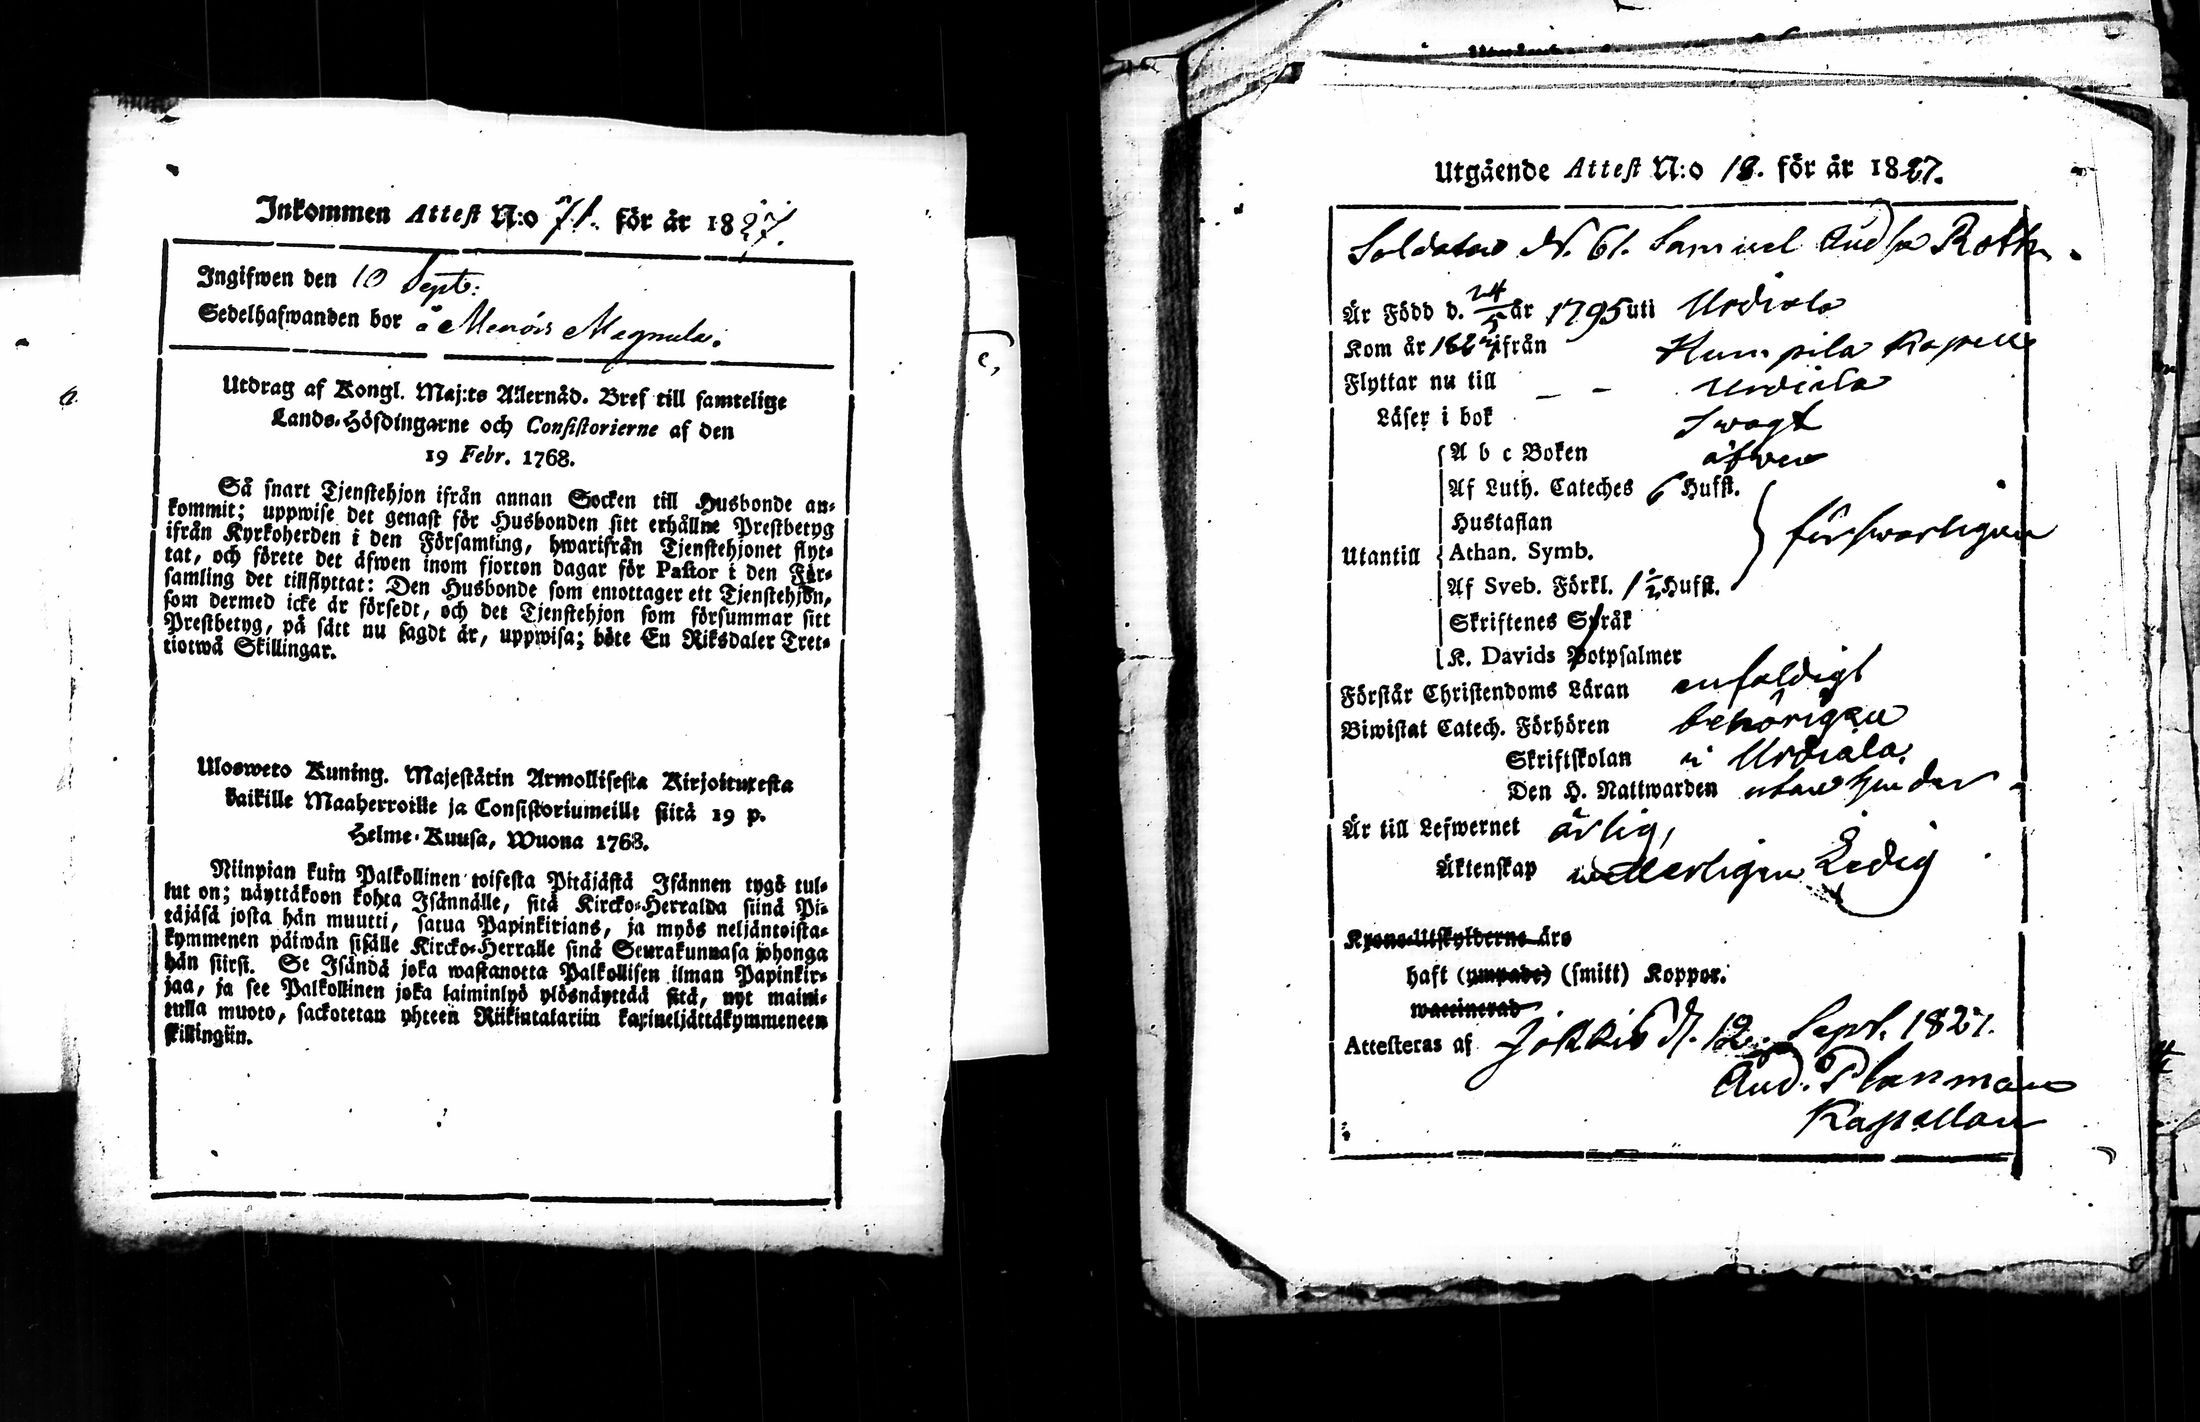 Inkommen Attest N:o 71. för år 1827.
Ingifwen den 10 Sept:
Sedelhafwanden bor å Menöis Magnula.
Utdrag af Kongl. Maj:ts Allernåd. Bref till samtelige
Lands-Höfdingarne och Consistorierne af den
19 Febr. 1768.
Så snart Tjenstehjon ifrån annan Socken till Husbonde an-
kommit; uppwise det genast för Husbonden sitt erhållne Prestbetyg
ifrån Kyrkoherden i den Församling, hwarifrån Tjenstehjonet flyt-
tat, och förete det äfwen inom fjorton dagar för Pastor i den För-
samling det tillflyttat: Den Husbonde som emottager ett Tjenstehjon,
som dermed icke är försedt, och det Tjenstehjon som försummar sitt
Prestbetyg, på sätt nu sagdt är, uppwisa; böte En Riksdaler Tret-
tiotwå Skillingar.
Ulosweto Kuning. Majestätin Armollisesta Kirjoituxesta
kaikille Maaherroille ja Consistoriumeille siitä 19 p.
Helme-Kuusa, Wuona 1768.
Niinpian kuin Palkollinen toisesta Pitäjästä Isännen tygö tul-
lut on; näyttäkoon kohta Isännälle, sitä Kircko-Herralda siinä Pi-
täjäsä josta hän muutti, saatua Papinkirjans, ja myös neljäntoista-
kymmenen päiwän sisälle Kircko-Herralle sinä Seurakunnasa johonga
hän siirsi. Se Isändä joka wastanotta Palkollisen ilman Papinkir-
jaa, ja see Palkollinen joka laiminlyö ylösnäyttää sitä, nyt maini-
tulla muoto, sackotetan yhteen Riikintalariin kaxineljättäkymmeneen
skillingiin.
Utgående Attest N:o 18. för år 1827.
Soldaten N. 61. Samuel And:sn Roth.
Är Född d. 24/5 år 1795 uti Urdiala
Kom år 1824 ifrån Humpila Kapell
Flyttar nu till — — Urdiala
Läser i bok swagt
A b c Boken äfwen
Af Luth. Cateches 6 Hufst.
Hustaflan
Utantill Athan. Symb. försvarligen
Af Sveb. Förkl. 1 1/2 Hufst.
Skriftenes Språk
K. Davids Botpsalmer
Förstår Christendoms Läran enfaldigt
Biwistat Catech. Förhören behörigen
Skriftskolan i Urdiala
Den H. Nattwarden utan hinder
Är till Lefwernet ärlig,
Äktenskap wetterligen Ledig
Krono-Utskylderne äro
haft (ympade) (smitt) Koppor.
waccinerad
Attesteras af Jokkis d. 12. Sept. 1827.
And. Planman
Kapellan